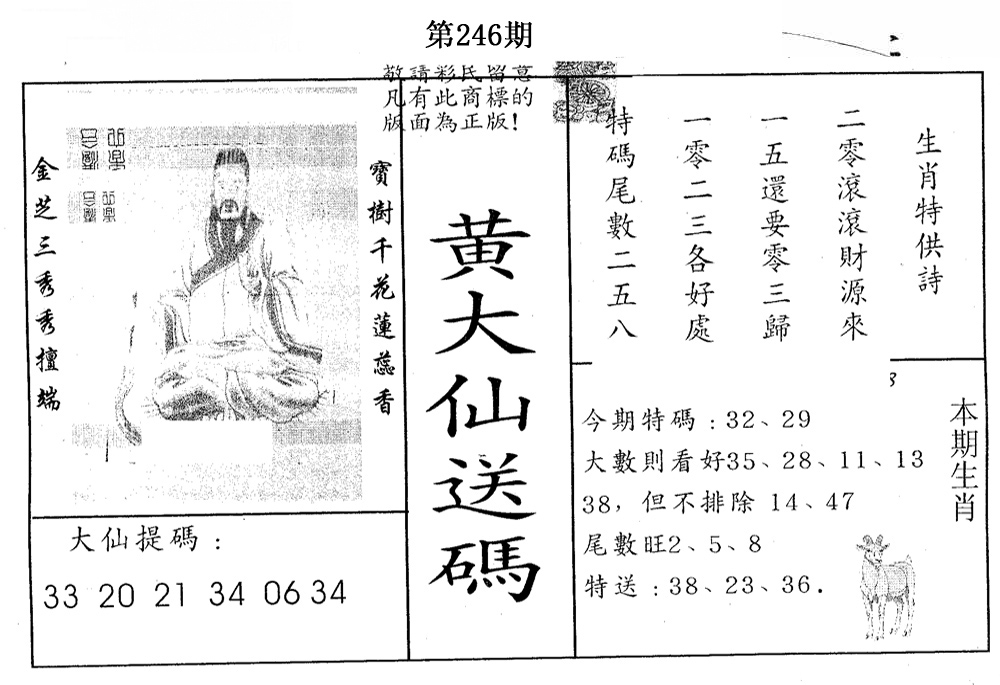 第246期
敬請彩民留意
凡有此商標的
版面為正版!
寶樹千花蓮蕊香
金芝三秀秀擅端
大仙提碼:
33 20 21 34 06 34
黃大仙送碼
生肖特供詩
二零滾滾財源來
一五還要零三歸
一零二三各好處
特碼尾數二五八
今期特碼:32、29
大數則看好35、28、11、13
38，但不排除 14、47
尾數旺2、5、8
特送:38、23、36.
本期生肖